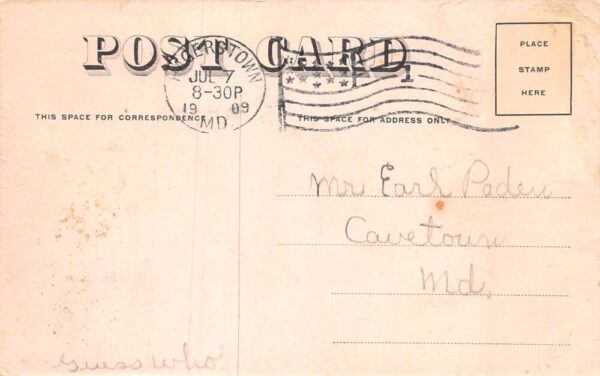 POST CARD
HAGERSTOWN
JUL 7
8-30P
1909
MD.
1
PLACE
STAMP
HERE
THIS SPACE FOR CORRESPONDENCE
THIS SPACE FOR ADDRESS ONLY
Mr Earl Paden
Cavetown
Md.
Guess who